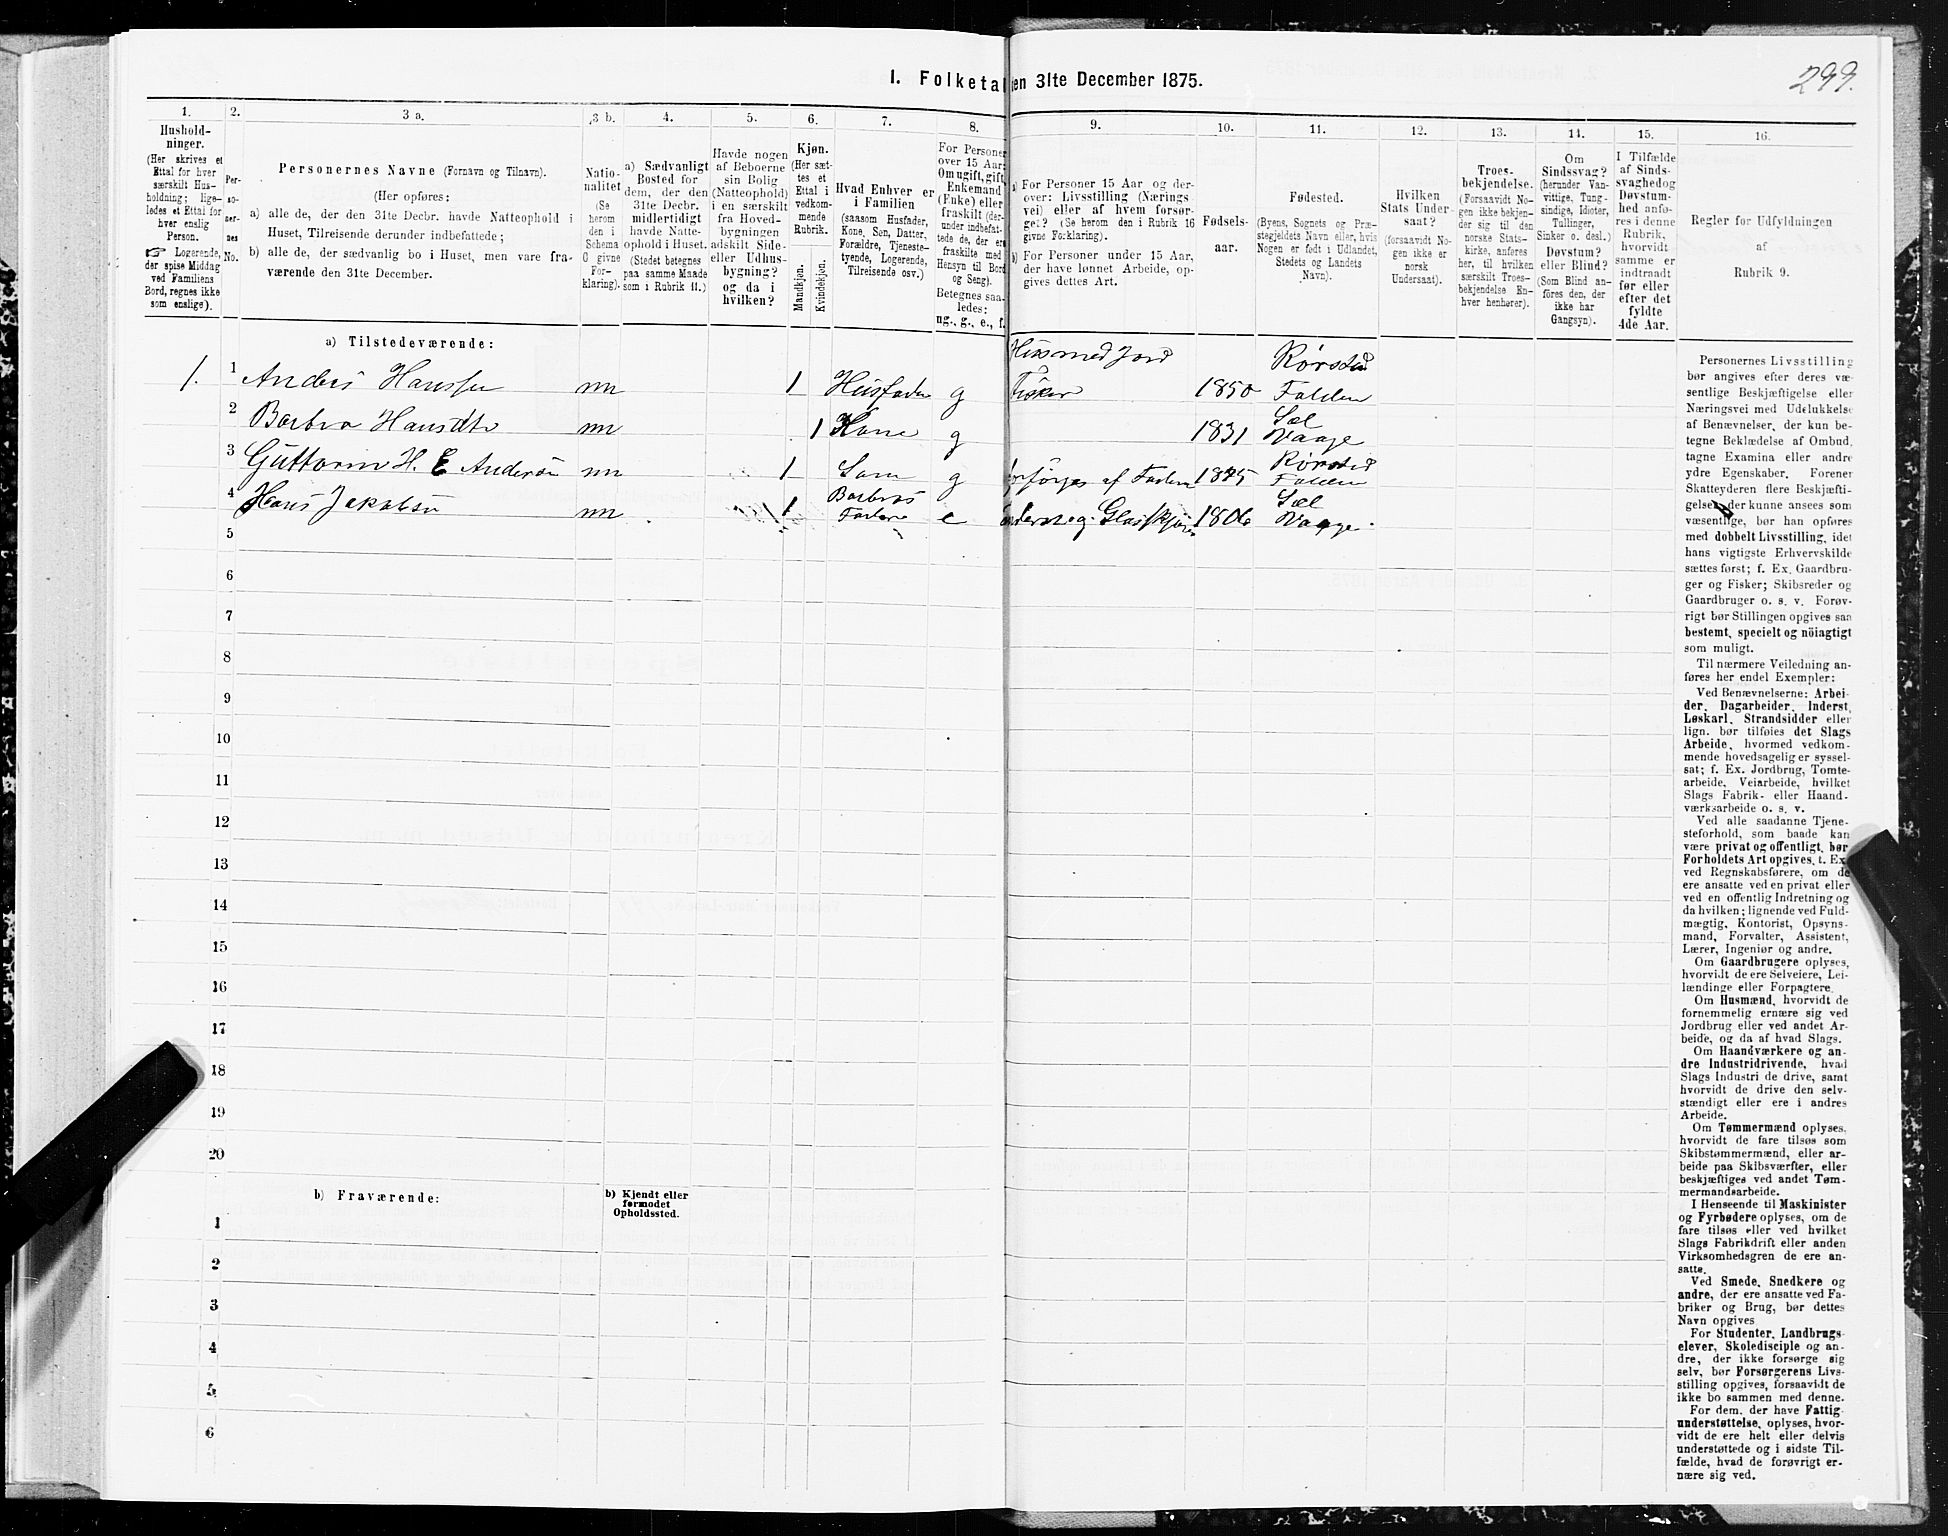 I. Folketal den 31te December 1875.
299.
1.
Hushold-
ninger.
(Her skrives et
Ettal for hver
særskilt Hus-
holdning; lige-
ledes et Ettal for
hver enslig
Person.
☞ Logerende,
der spise Middag
ved Familiens
Bord, regnes ikke
som enslige).
2.
Per-
so-
ner-
nes
No.
3 a.
Personernes Navne (Fornavn og Tilnavn).
(Her opføres:
a) alle de, der den 31te Decbr. havde Natteophold i
Huset, Tilreisende derunder indbefattede;
b) alle de, der sædvanlig bo i Huset, men vare fra-
værende den 31te December.
3 b.
Natio-
nalitet
(Se
herom
den i
Schema
C givne
For-
klaring).
4.
a) Sædvanligt
Bosted for
dem, der den
31te Decbr.
midlertidigt
havde Natte-
ophold i Huset.
(Stedet betegnes
paa samme Maade
som i Rubrik 11.)
5.
Havde nogen
af Beboerne
sin Bolig
(Natteophold)
i en særskilt
fra Hoved-
bygningen
adskilt Side-
eller Udhus-
bygning?
og da i
hvilken?
6.
Kjøn.
(Her sæt-
tes et
Ettal i
vedkom-
mende
Rubrik.
Mandkjøn.
Kvindekjøn.
7.
Hvad Enhver er
i Familien
(saasom Husfader,
Kone, Søn, Datter,
Forældre, Tjeneste-
tyende, Logerende,
Tilreisende osv.)
8.
For Personer
over 15 Aar:
Om ugift, gift,
Enkemand
(Enke) eller
fraskilt (der-
under indbefat-
tede de, der ere
fraskilte med
Hensyn til Bord
og Seng).
Betegnes saa-
ledes:
ug., g., e., f.
9.
a) For Personer 15 Aar og der-
over: Livsstilling (Nærings-
vei) eller af hvem forsør-
get? (Se herom den i Rubrik 16
givne Forklaring).
b) For Personer under 15 Aar,
der have lønnet Arbeide, op-
gives dettes Art.
10.
Fødsels-
aar.
11.
Fødested.
(Byens, Sognets og Præ-
stegjeldets Navn eller, hvis
Nogen er født i Udlandet,
Stedets og Landets
Navn).
12.
Hvilken
Stats Under-
saat?
(forsaavidt No-
gen ikke er
norsk
Undersaat).
13.
Troes-
bekjendelse.
(Forsaavidt No-
gen ikke bekjen-
der sig til den
norske Stats-
kirke, anføres
her, til hvilken
særskilt Troes-
bekjendelse En-
hver henhører).
14.
Om
Sindssvag?
(herunder Van-
vittige, Tung-
sindige, Idioter,
Tullinger,
Sinker o. desl.)
Døvstum?
eller Blind?
(Som Blind an-
føres den, der
ikke har
Gangsyn).
15.
I Tilfælde
af Sinds-
svaghed og
Døvstum-
hed anfø-
res i denne
Rubrik,
hvorvidt
samme er
indtraadt
før eller
efter det
fyldte
4de Aar.
16.
Regler for Udfyldningen
af
Rubrik 9.
a) Tilstedeværende:
1. 1 Anders Hanssen nn 1 Husfader g Husmed Jord Fisker 1850 Rørstad Folden
2 Barbro Hansdtr nn 1 Kone g 1831 Sæl Vaage
3 Guttorm H. E Andersen nn 1 Søn g Forsørges af Faderen 1875 Rørstad Folden
4 Hans Jakobsen nn 1 Barbros Fader e 1806 Sæl Vaage.
5
6
7
8
9
10
11
12
13
14
15
16
17
18
19
20
b) Fraværende:
b) Kjendt eller
formodet
Opholdssted.
1
2
3
4
5
6
Personernes Livsstilling
bør angives efter deres væ-
sentlige Beskjæftigelse eller
Næringsvei med Udelukkelse
af Benævnelser, der kun be-
tegne Beklædelse af Ombud,
tagne Examina eller andre
ydre Egenskaber. Forener
Skatteyderen flere Beskjæfti-
gelser, der kunne ansees som
væsentlige, bør han opføres
med dobbelt Livsstilling, idet
hans vigtigste Erhvervskilde
sættes først; f. Ex. Gaardbru-
ger og Fisker; Skibsreder og
Gaardbruger o. s. v. Forøv-
rigt bør Stillingen opgives saa
bestemt, specielt og nöiagtigt
som muligt.
Til nærmere Veiledning an-
føres her endel Exempler:
Ved Benævnelserne: Arbei-
der, Dagarbeider, Inderst,
Løskarl, Strandsidder eller
lign. bør tilføies det Slags
Arbeide, hvormed vedkom-
mende hovedsagelig er syssel-
sat; f. Ex. Jordbrug, Tomte-
arbeide, Veiarbeide, hvilket
Slags Fabrik- eller Haand-
værksarbeide o. s. v.
Ved alle saadanne Tjene-
steforhold, som baade kan
være privat og offentligt, bør
Forholdets Art opgives, t. Ex.
ved Regnskabsførere, om de
ere ansatte ved en privat eller
ved en offentlig Indretning og
da hvilken; lignende ved Fuld-
mægtig, Kontorist, Opsyns-
mand, Forvalter, Assistent,
Lærer, Ingeniør og andre.
Om Gaardbrugere oplyses,
hvorvidt de ere Selveiere, Lei-
lændinge eller Forpagtere.
Om Husmænd, hvorvidt de
fornemmelig ernære sig ved
Jordbrug eller ved andet Ar-
beide, og da af hvad Slags.
Om Haandværkere og an-
dre Industridrivende, hvad
Slags Industri de drive, samt
hvorvidt de drive den selv-
stændigt eller ere i andres
Arbeide.
Om Tømmermænd oplyses,
hvorvidt de fare tilsøs som
Skibstømmermænd, eller ar-
beide paa Skibsværfter, eller
beskjæftiges ved andet Tøm-
mermandsarbeide.
I Henseende til Maskinister
og Fyrbødere oplyses, om de
fare tilsøs eller ved hvilket
Slags Fabrikdrift eller anden
Virksomhedsgren de ere an-
satte.
Ved Smede, Snedkere og
andre, der ere ansatte ved Fa-
briker og Brug, bør dettes
Navn opgives
For Studenter, Landbrugs-
elever, Skoledisciple og an-
dre, der ikke forsørge sig
selv, bør Forsørgerens Livs-
stilling opgives, forsaavidt de
ikke bo sammen med denne.
For dem, der have Fattig-
understøttelse, oplyses, hvor-
vidt de ere helt eller delvis
understøttede og i sidste Til-
fælde, hvad de forøvrigt er-
nære sig ved.